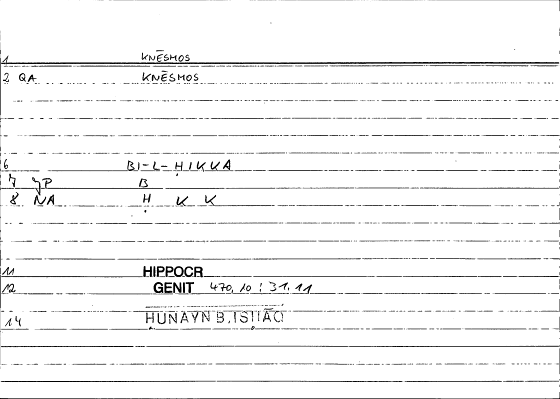 1 KNĒSMOS
2 QA KNĒSMOS
6 BI-L-ḤIKKA
7 YP B
8 NA Ḥ K K
11 HIPPOCR
12 GENIT 470,10 : 31,11
14 ḤUNAYN B.ISḤĀQ